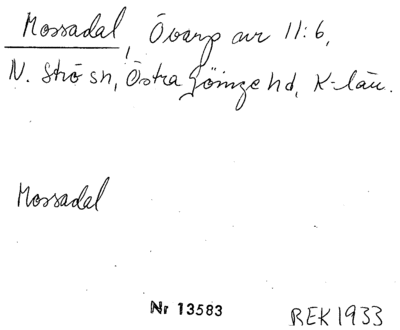 Mossadal, Övarp av 11:6,
N. Strö sn, Östra Göinge hd, K-län.
Mossadal
Nr 13583
REK 1933